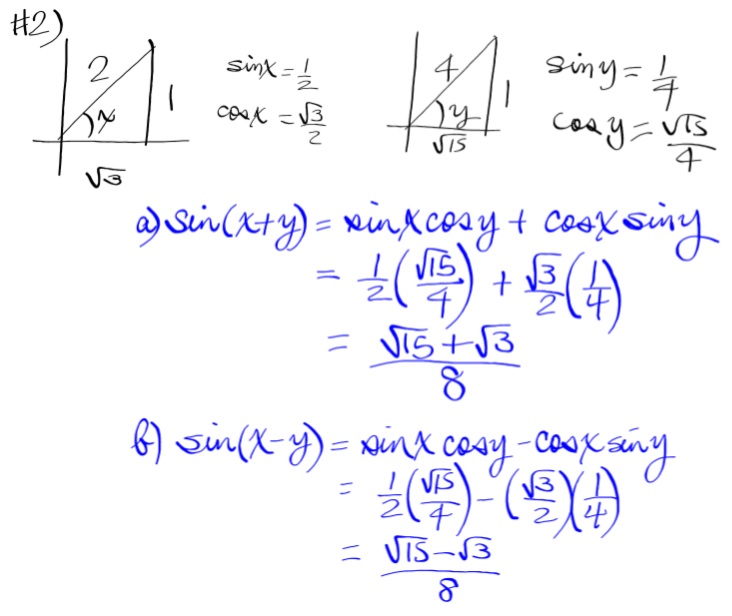 #2)
2 1 x √3
sinx = 1/2
cosx = √3/2
4 1 y √15
siny = 1/4
cosy = √15/4
a) sin(x+y) = sinx cosy + cosx siny
= 1/2 (√15/4) + √3/2 (1/4)
= (√15 + √3)/8
b) sin(x-y) = sinx cosy - cosx siny
= 1/2 (√15/4) - (√3/2)(1/4)
= (√15 - √3)/8